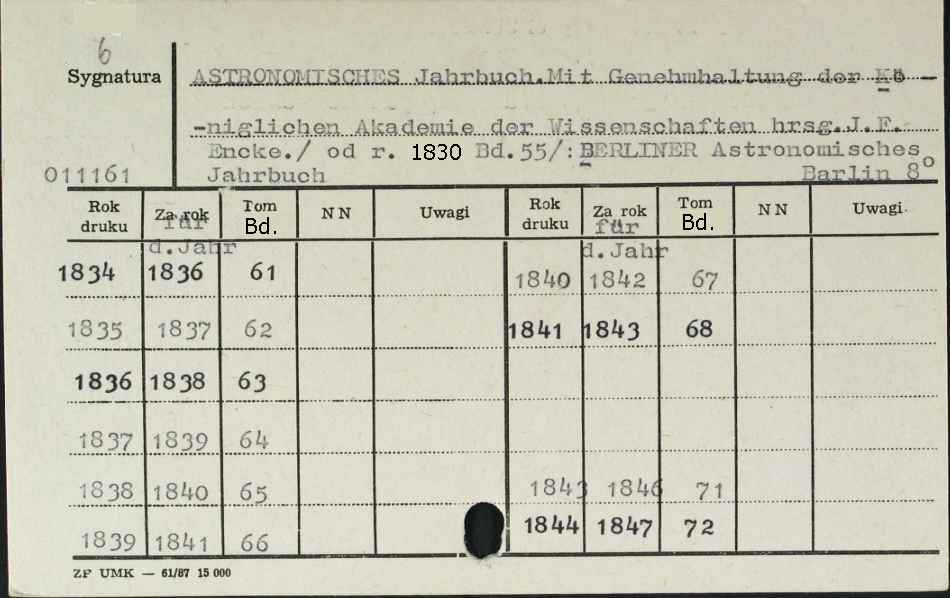 6
Sygnatura
ASTRONOMISCHES Jahrbuch.Mit Genehmhaltung der Kö -
-niglichen Akademie der Wissenschaften hrsg.J.F.
Encke./ od r. 1830 Bd.55/:BERLINER Astronomisches
011161 Jahrbuch Barlin 8°
Rok druku Za rok für d.Jahr Tom Bd. NN Uwagi Rok druku Za rok für d.Jahr Tom Bd. NN Uwagi
1834 1836 61 1840 1842 67
1835 1837 62 1841 1843 68
1836 1838 63
1837 1839 64
1838 1840 65 1843 1846 71
1839 1841 66 1844 1847 72
ZF UMK — 61/87 15 000